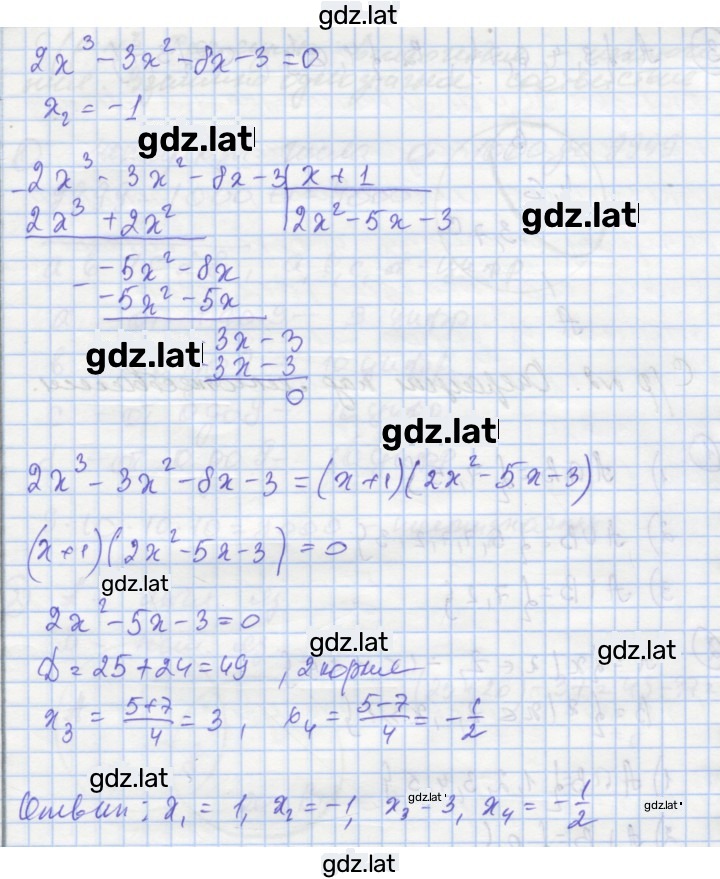 gdz.lat
2x³ - 3x² - 8x - 3 = 0
x₂ = -1
gdz.lat
2x³ - 3x² - 8x - 3 | x + 1
2x³ + 2x² | 2x² - 5x - 3
gdz.lat
- -5x² - 8x
-5x² - 5x
gdz.lat
3x - 3
3x - 3
0
gdz.lat
2x³ - 3x² - 8x - 3 = (x+1)(2x² - 5x - 3)
(x+1)(2x² - 5x - 3) = 0
gdz.lat
2x² - 5x - 3 = 0
gdz.lat
gdz.lat
D = 25 + 24 = 49, 2 корня
x₃ = (5+7)/4 = 3, x₄ = (5-7)/4 = -1/2
gdz.lat
Ответ: x₁ = 1, x₂ = -1, x₃ = 3, x₄ = -1/2
gdz.lat
gdz.lat
gdz.lat